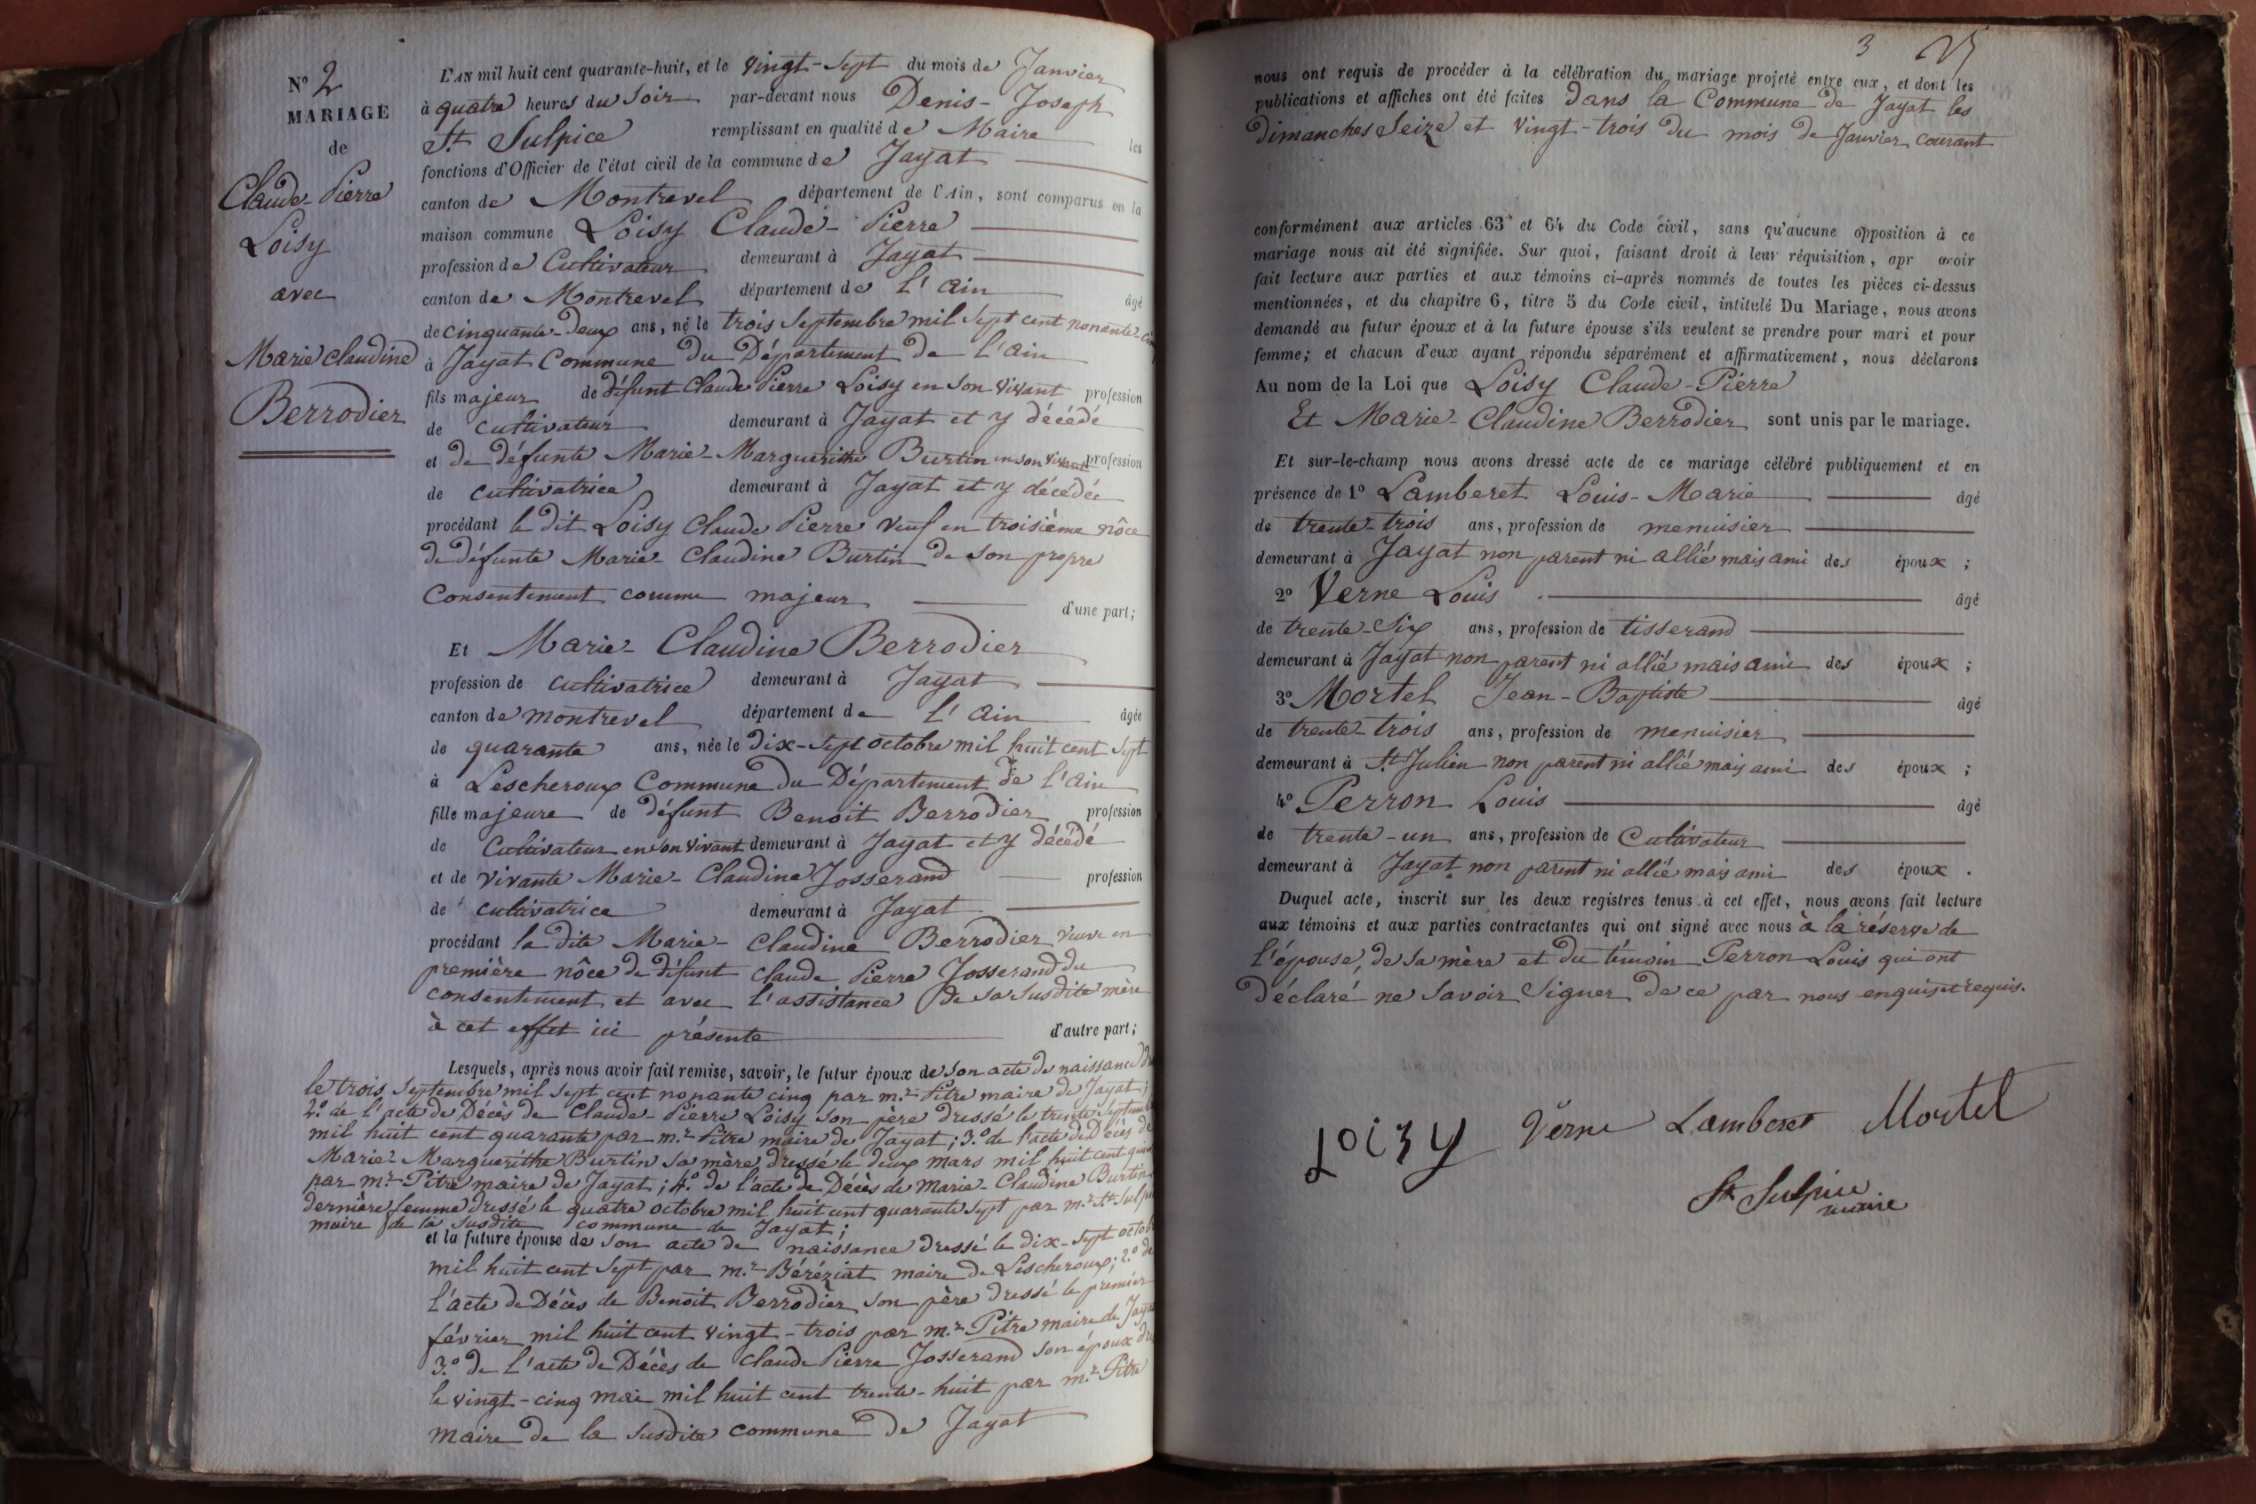 Nº 2
MARIAGE
de
Claude-Pierre
Loisy
avec
Marie Claudine
Berrodier
L'AN mil huit cent quarante-huit, et le vingt-sept du mois de Janvier
à quatre heures du soir par-devant nous Denis-Joseph
St Sulpice remplissant en qualité de Maire les
fonctions d'Officier de l'état civil de la commune de Jayat
canton de Montrevel département de l'Ain, sont comparus en la
maison commune Loisy Claude-Pierre
profession de Cultivateur demeurant à Jayat
canton de Montrevel département de l'ain âgé
de cinquante-deux ans, né le trois Septembre mil sept cent nonante-cinq
à Jayat Commune du Département de l'ain
fils majeur de défunt Claude Pierre Loisy en son vivant profession
de cultivateur demeurant à Jayat et y décédé
et de défunte Marie-Marguerithe Burtin en son vivant profession
de cultivatrice demeurant à Jayat et y décédée
procédant le dit Loisy Claude Pierre veuf en troisième nôce
de défunte Marie-Claudine Burtin de son propre
Consentement comme majeur d'une part;
Et Marie-Claudine Berrodier
profession de cultivatrice demeurant à Jayat
canton de montrevel département de l'ain âgée
de quarante ans, née le dix-sept octobre mil huit cent sept
à Lescheroux Commune du Département de l'ain
fille majeure de défunt Benoit Berrodier profession
de Cultivateur en son vivant demeurant à Jayat et y décédé
et de vivante Marie-Claudine Josserand profession
de cultivatrice demeurant à Jayat
procédant la dite Marie-Claudine Berrodier veuve en
première nôce de défunt Claude Pierre Josserand du
consentement et avec l'assistance de sa susdite mère
à cet effet ici présente d'autre part;
Lesquels, après nous avoir fait remise, savoir, le futur époux de son acte de naissance
le trois Septembre mil sept cent nonante cinq par m.r Pitre maire de Jayat;
2.º de l'acte de Décès de Claude-Pierre Loisy son père dressé le trente Septembre
mil huit cent quarante par m.r Pitre maire de Jayat; 3.º de l'acte de Décès de
Marie-Marguerithe Burtin sa mère dressé le deux mars mil huit cent
par m.r Pitre maire de Jayat; 4.º de l'acte de Décès de Marie-Claudine Burtin
dernière femme dressé le quatre octobre mil huit cent quarante sept par m.r St Sulpice
maire de la susdite commune de Jayat;
et la future épouse de son acte de naissance dressé le dix-sept octobre
mil huit cent sept par m.r Béréziat maire de Lescheroux; 2.º de
l'acte de Décès de Benoit Berrodier son père dressé le premier
février mil huit cent vingt-trois par m.r Pitre maire de Jayat
3.º de l'acte de Décès de Claude Pierre Josserand son époux
le vingt-cinq mai mil huit cent trente-huit par m.r Pitre
maire de la susdite commune de Jayat
3
nous ont requis de procéder à la célébration du mariage projeté entre eux, et dont les
publications et affiches ont été faites dans la Commune de Jayat les
dimanches Seize et vingt-trois du mois de Janvier courant
conformément aux articles 63 et 64 du Code civil, sans qu'aucune opposition à ce
mariage nous ait été signifiée. Sur quoi, faisant droit à leur réquisition, apr avoir
fait lecture aux parties et aux témoins ci-après nommés de toutes les pièces ci-dessus
mentionnées, et du chapitre 6, titre 5 du Code civil, intitulé Du Mariage, nous avons
demandé au futur époux et à la future épouse s'ils veulent se prendre pour mari et pour
femme; et chacun d'eux ayant répondu séparément et affirmativement, nous déclarons
Au nom de la Loi que Loisy Claude-Pierre
Et Marie-Claudine Berrodier sont unis par le mariage.
Et sur-le-champ nous avons dressé acte de ce mariage célébré publiquement et en
présence de 1º Lamberet Louis-Marie âgé
de trente-trois ans, profession de menuisier
demeurant à Jayat non parent ni allié mais ami des époux;
2º Verne Louis âgé
de trente-six ans, profession de tisserand
demeurant à Jayat non parent ni allié mais ami des époux;
3º Mortel Jean-Baptiste âgé
de trente-trois ans, profession de menuisier
demeurant à St Julien non parent ni allié mais ami des époux;
4º Perron Louis âgé
de trente-un ans, profession de Cultivateur
demeurant à Jayat non parent ni allié mais ami des époux.
Duquel acte, inscrit sur les deux registres tenus à cet effet, nous avons fait lecture
aux témoins et aux parties contractantes qui ont signé avec nous à la réserve de
l'épouse, de sa mère et du témoin Perron Louis qui ont
déclaré ne savoir signer de ce par nous enquis et requis.
Loizy Verne Lamberet Mortel
St Sulpice
maire